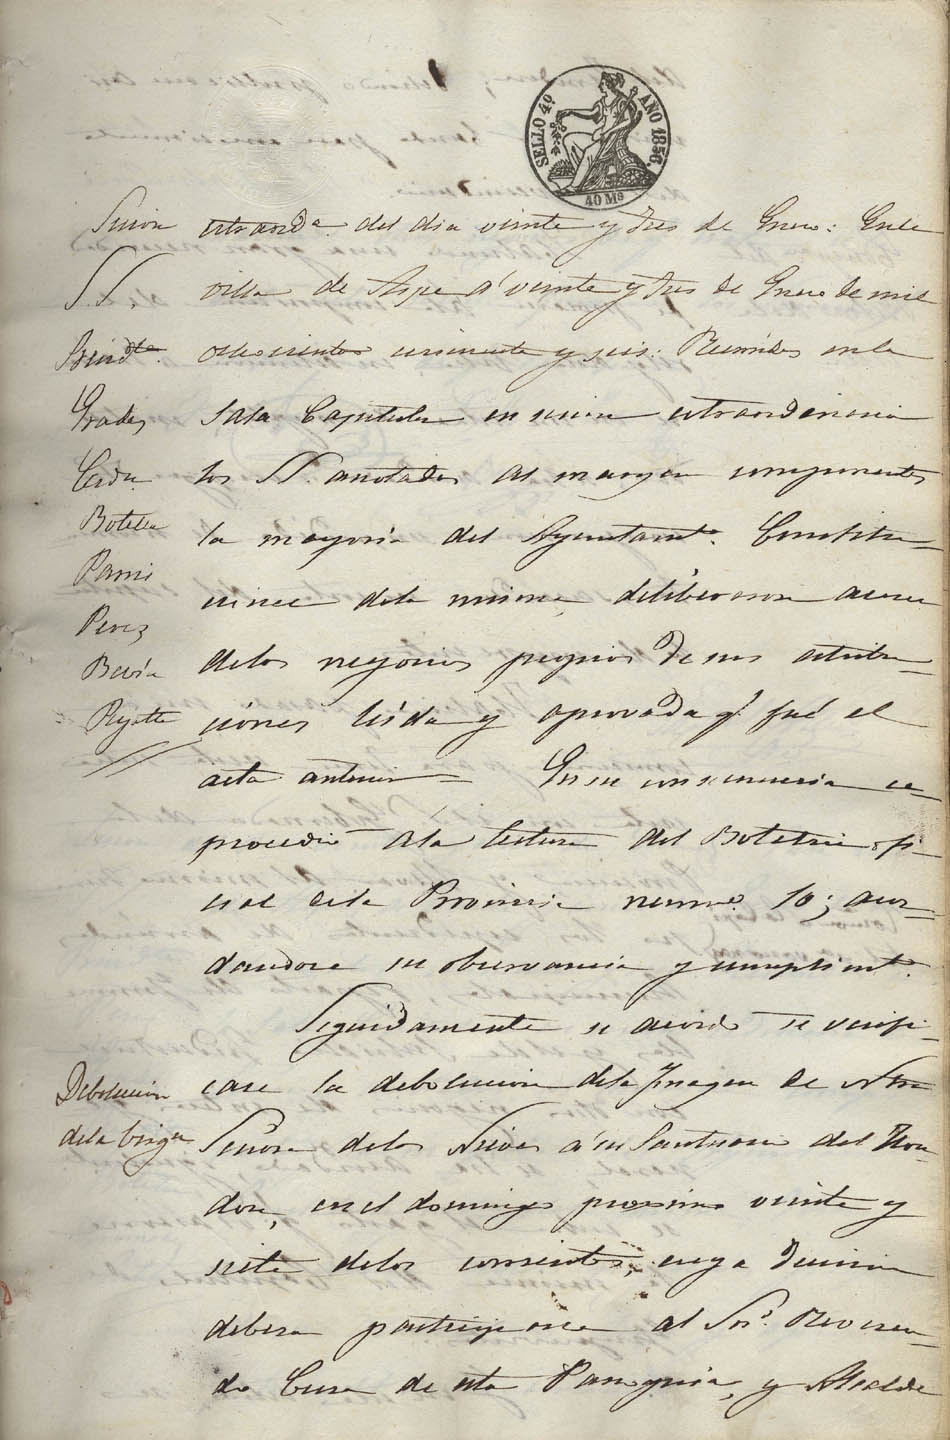 SELLO 4º AÑO 1856.
40 Ms
Sesion extraorda. del dia veinte y tres de Enero: En la
villa de Aspe á veinte y tres de Enero de mil
ochocientos cincuenta y seis: Reunidos en la
Sala Capitular en sesion extraordinaria
los SS. anotados al margen componentes
la mayoria del Ayuntamto. Constitu-
cional dela misma, deliberaron acerca
delos negocios propios de sus atribu-
ciones leida y aprovada q. fué el
acta anterior = En su consecuencia se
procedió ála lectura del Boletin ofi-
cial dela Provincia numo. 10; acor-
dandose su observancia y cumplimto.
Seguidamente se acordó se verifi-
case la debolucion dela Imagen de Ntra
Señora delas Nieves á su Santuario del Hon-
don, en el domingo proximo veinte y
siete delos corrientes, cuya decision
debera participarse al Sor. Reveren-
do Cura de esta Parroquia, y Alcalde
SS.
Presidte.
Prades
Cerdn.
Botella
Pavia
Perez
Bevia
Debolucion
dela Virgen